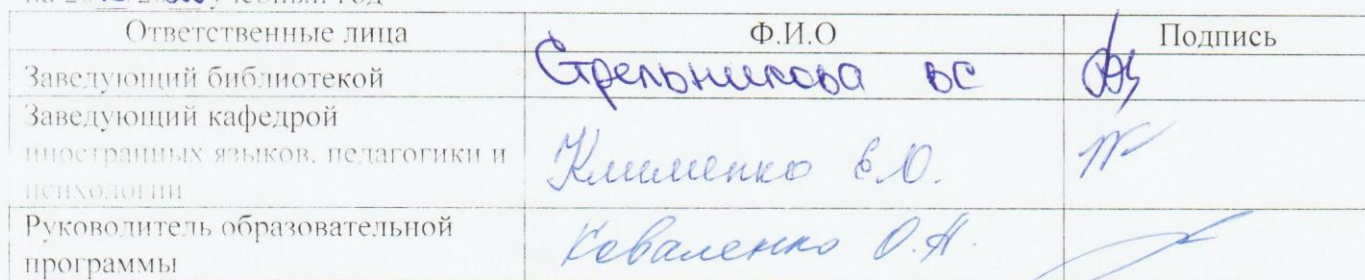 учебный год
Ответственные лица Ф.И.О Подпись
Заведующий библиотекой Стрельникова ВС
Заведующий кафедрой
иностранных языков, педагогики и
психологии Клименко Е.О.
Руководитель образовательной
программы Коваленко О.А.